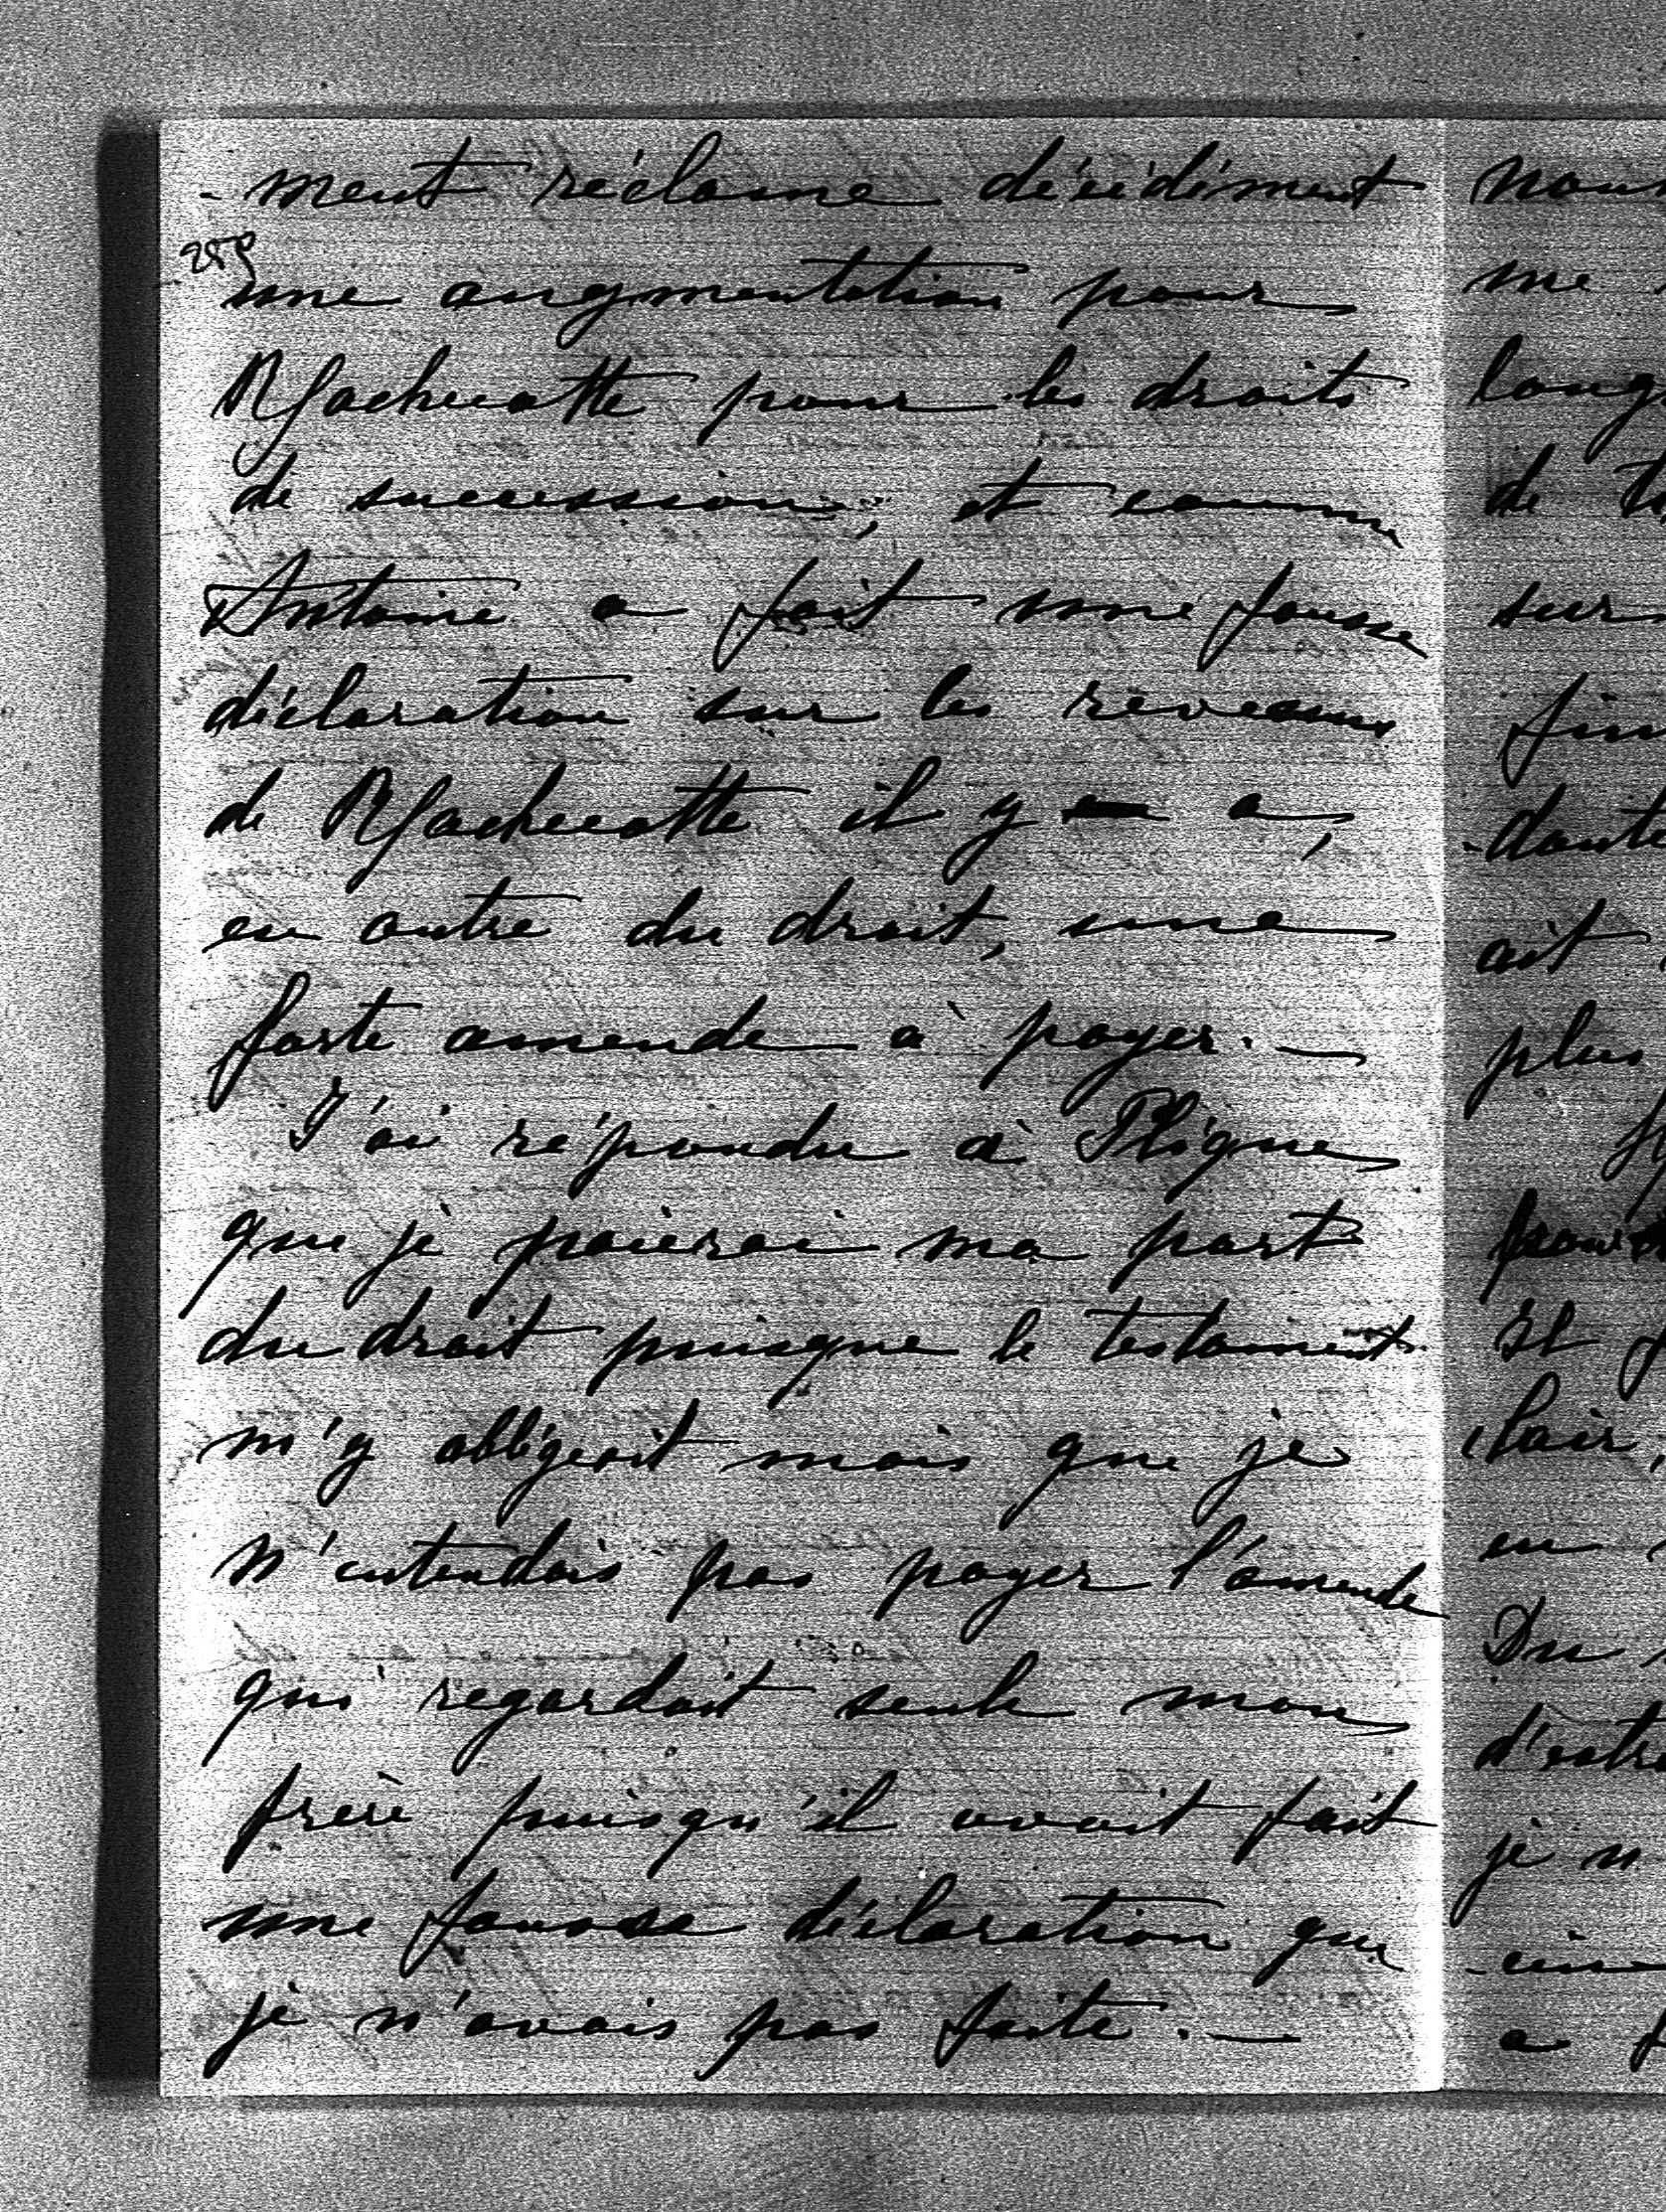 -ment réclame décidément
259
une augmentation pour
Machecatte pour les droits
de succession, et comme
Antoine a fait une fausse
déclaration sur les revenus
de Machecatte il y a,
en outre du droit, une
forte amende à payer. —
J'ai répondu à Pligne
que je paierai ma part
du droit puisque le testament
m'y obligeait mais que je
n'entendais pas payer l'amende
qui regardait seule mon
frère puisqu'il avait fait
une fausse déclaration que
je n'avais pas faite. —
me
de
sur
ait
plus
Et
en
Du
je n
a